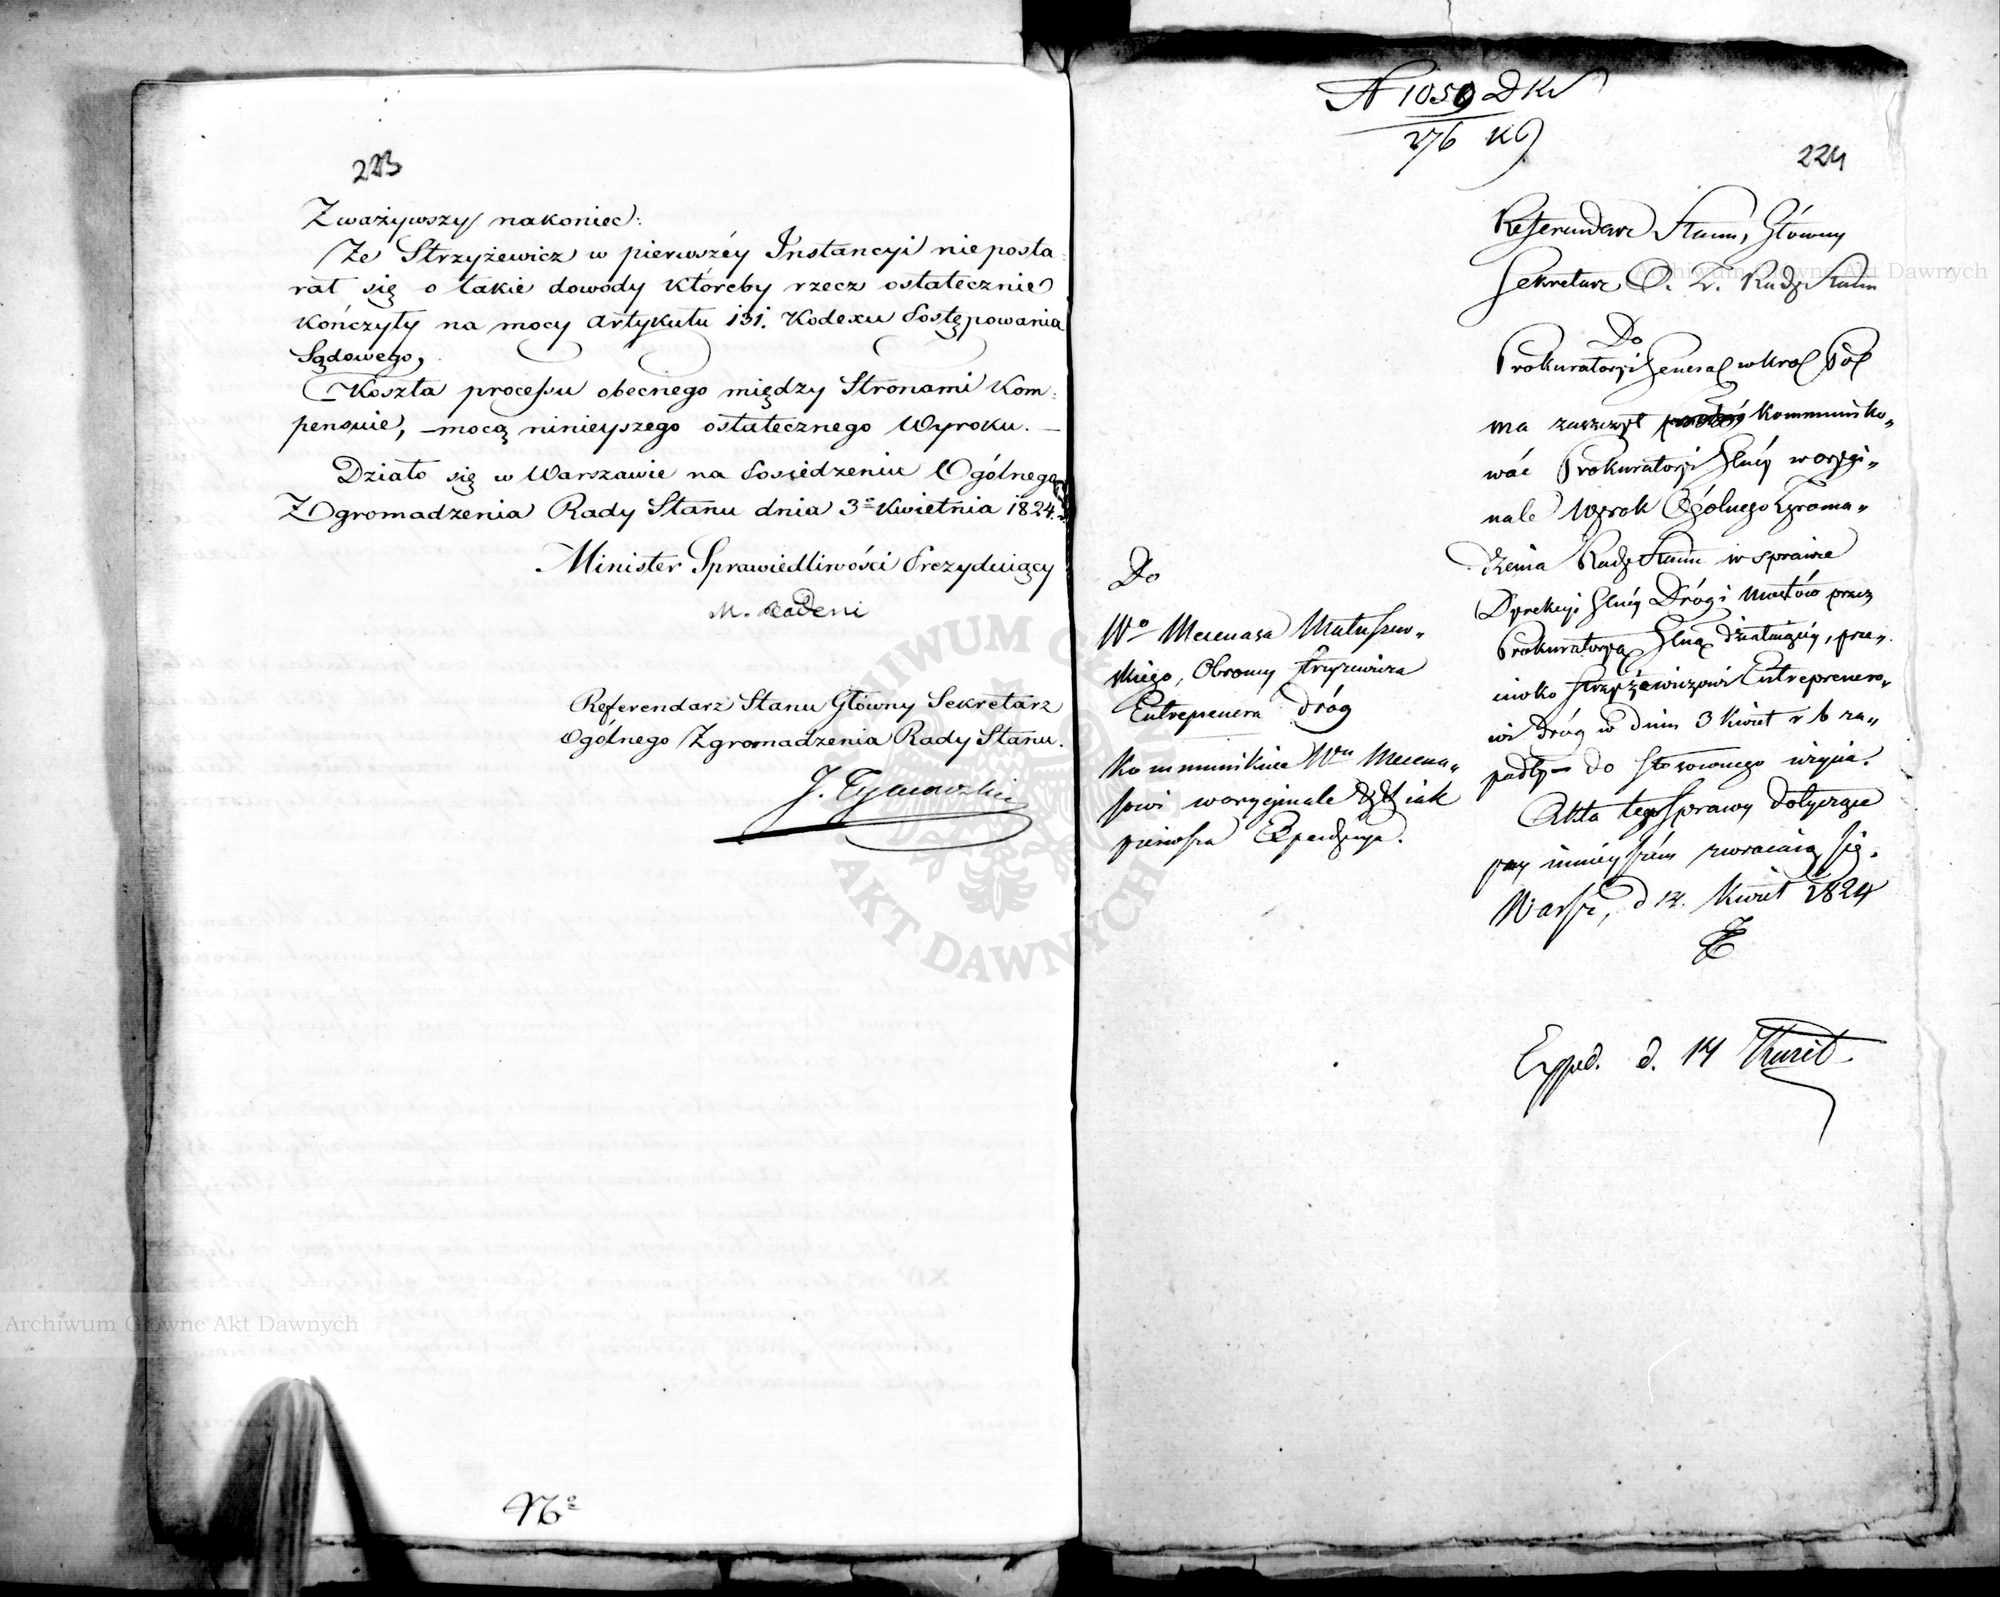 223
Zważywszy nakoniec:
Że Strzyżewicz w pierwszéy Instancyi nieposta-
rał się o takie dowody któreby rzecz ostatecznie
kończyły na mocy artykułu 131. Kodexu Postępowania
Sądowego,
Koszta processu obecnego między Stronami kom-
pensuie, mocą ninieyszego ostatecznego Wyroku. —
Działo się w Warszawie na Posiedzeniu Ogólnego
Zgromadzenia Rady Stanu dnia 3º Kwietnia 1824. r.
Minister Sprawiedliwości Prezyduiący
M. Badeni
Referendarz Stanu Główny Sekretarz
Ogólnego Zgromadzenia Rady Stanu.
J. Tymowski
Nº
N 1059 DKS
276 KG
224
Referendarz Stanu, Główny
Sekretarz O. Z. Rady Stanu
Do
Prokuratoryi General w Krol Pol
ma zaszczyt kommuniko„
wać Prokuratoryi Głney w orygi„
nale Wyrok Ogólnego Zgroma„
dzenia Rady Stanu w sprawie
Dyrekcyi Głney Dróg i Mostów przez
Prokuratoryą Głną działaiącey, prze„
ciwko Strzyżewiczowi Entreprenero„
wi dróg w dniu 3 Kwiet r b za„
padły do stosownego użycia.
Akta tey Sprawy dotyczące
przy ninieyszém zwracaią się.
Warsz, d 14. Kwiet 1824
Exped. d. 14 Kwiet
Do
Wº Mecenasa Matuszew„
skiego, Obrony Strzyzewicza
Entreprenera dróg
Kommunikuie Wmu Mecena„
sowi w oryginale iak
pierwsza Expedycya.
Archiwum Główne Akt Dawnych
Archiwum Główne Akt Dawnych
ARCHIWUM GŁÓWNE AKT DAWNYCH